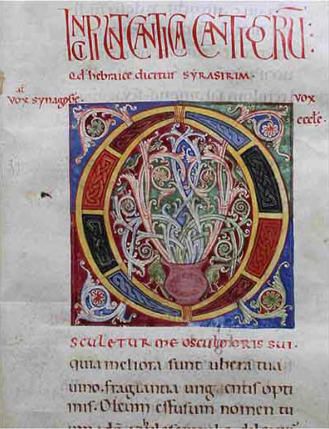 INCIPIUNT CANTICA CANTICORU:
Qd hebraice dicitur SYRASIRIM.
at
vox synagoge
vox
eccle.
O
SCULETUR ME OSCULO ORIS SUI.
quia meliora sunt ubera tua
uino. fragrantia unguentis opti
mis. Oleum effusum nomen tu